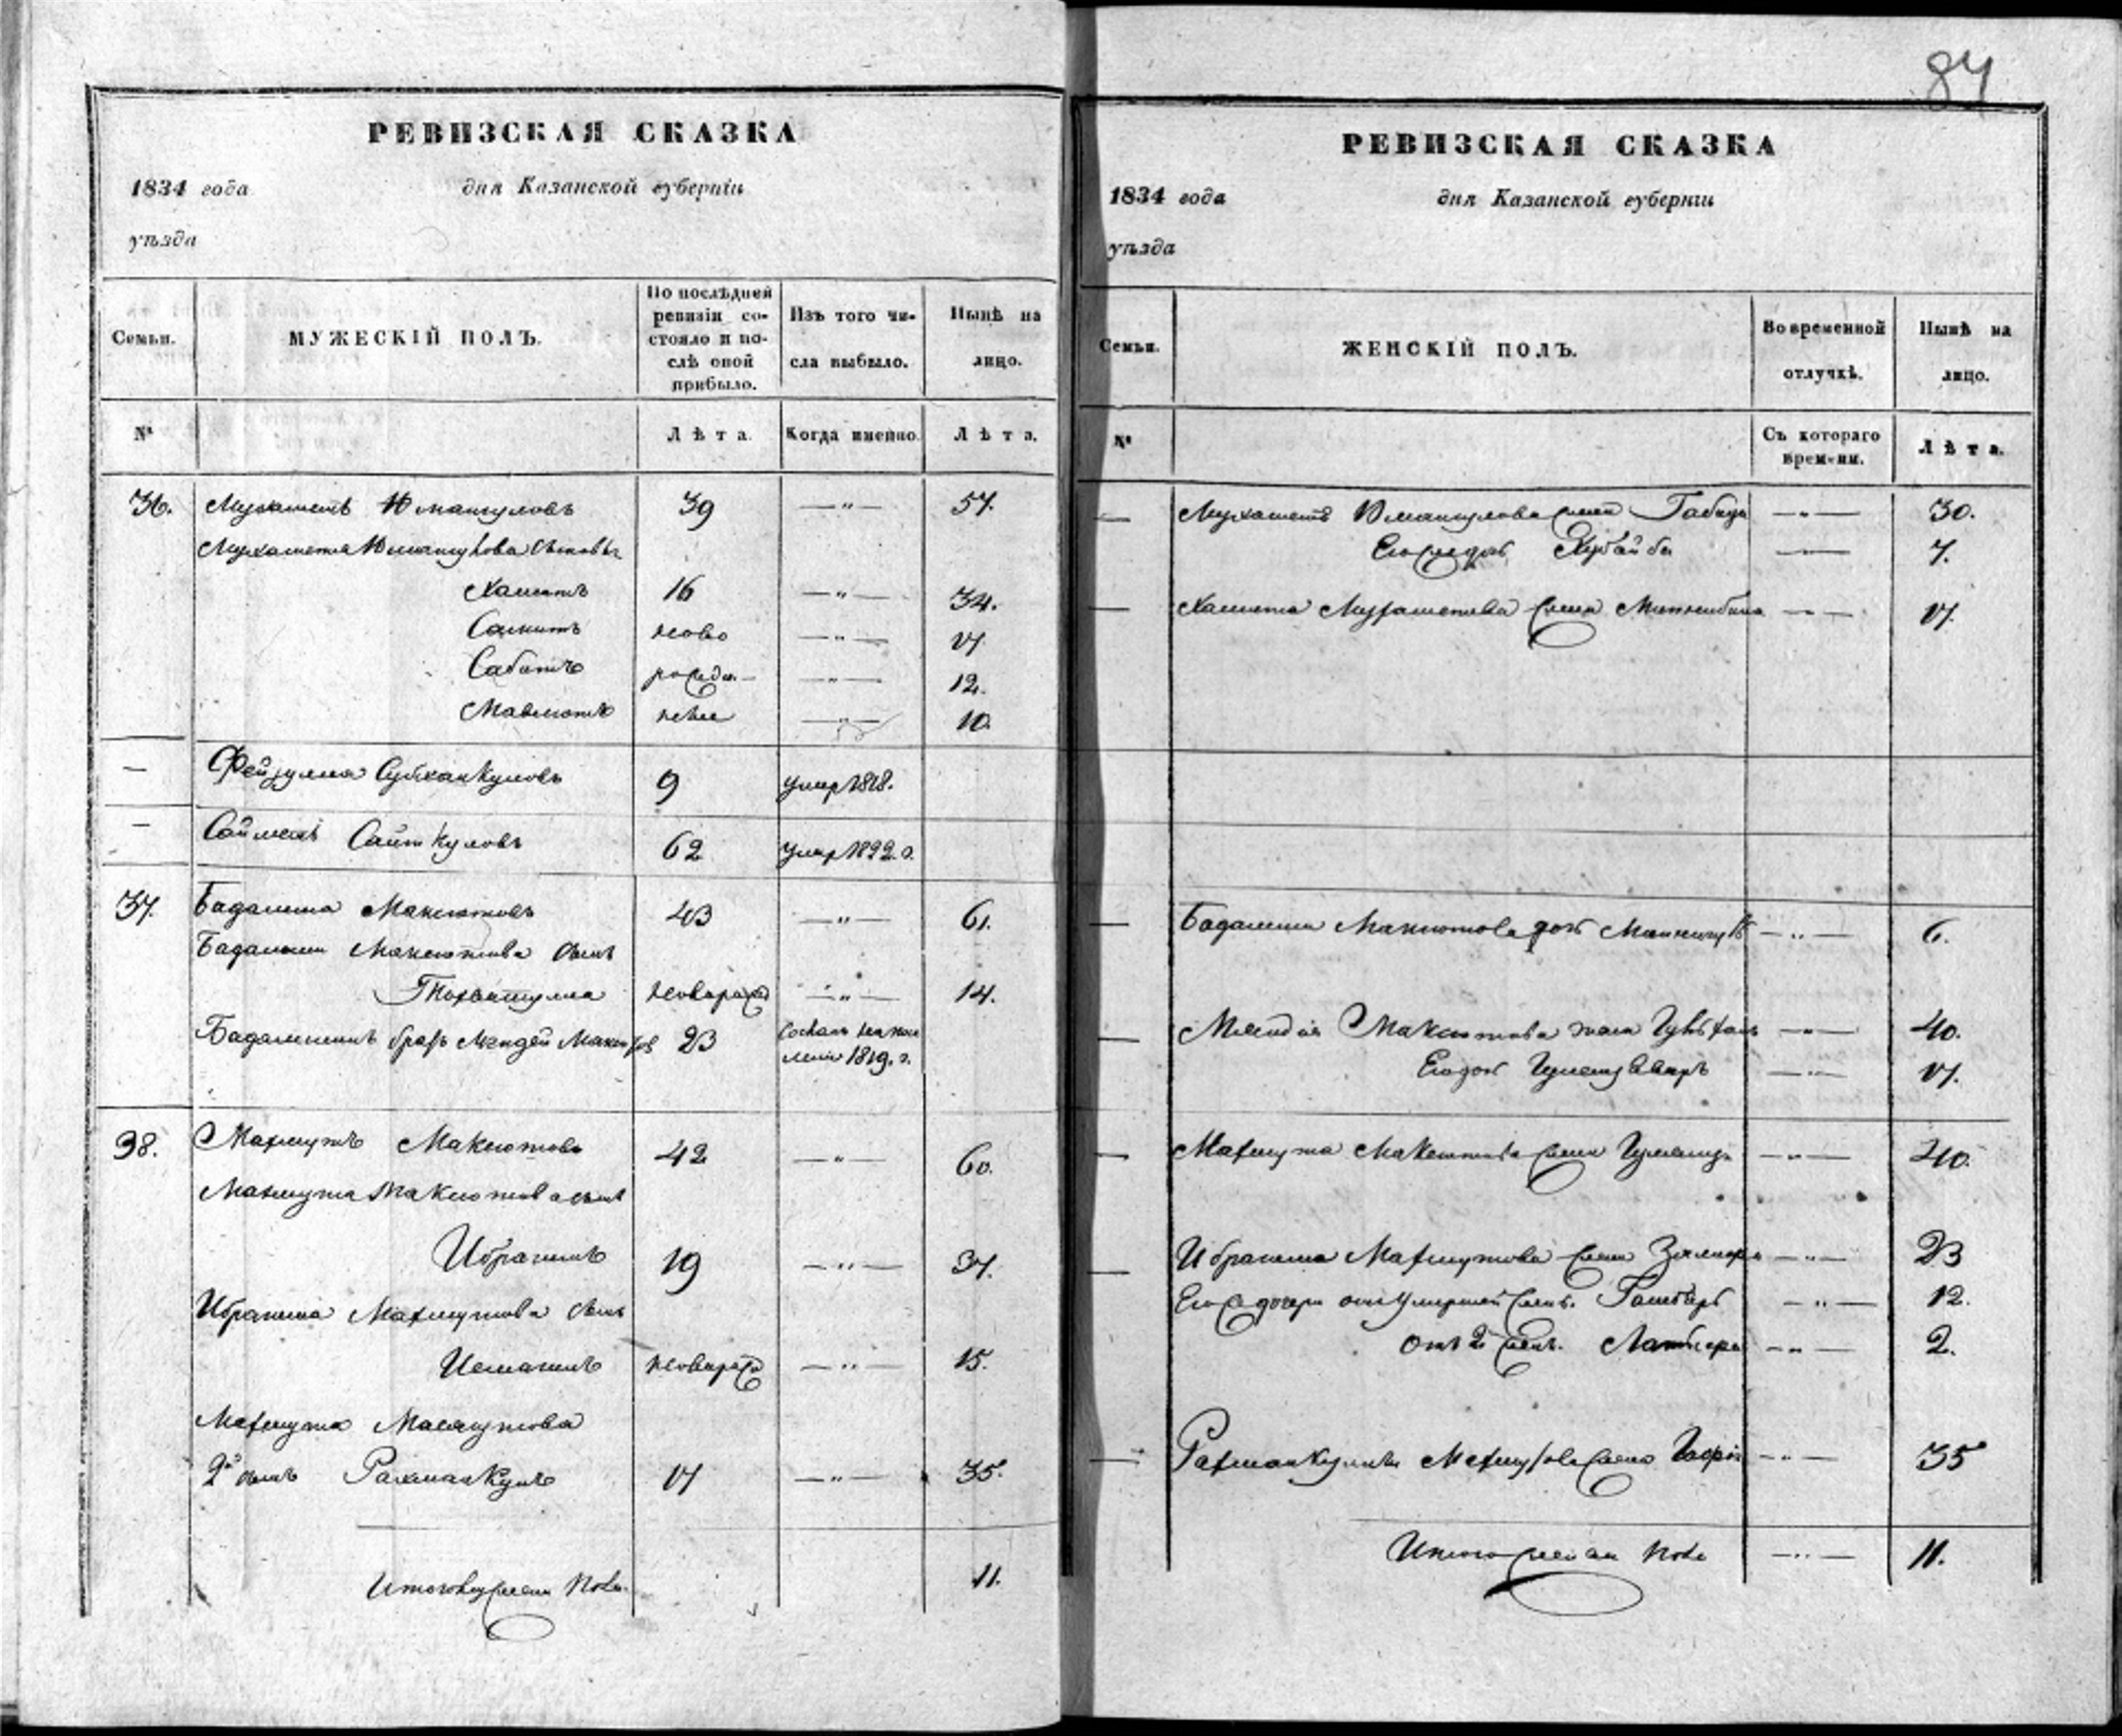 84
РЕВИЗСКАЯ СКАЗКА
1834 года дня Казанской губерніи
уѣзда
Семьи.
МУЖЕСКІЙ ПОЛЪ.
По послѣдней
ревизіи со-
стояло и по-
слѣ оной
прибыло.
Изъ того чи-
сла выбыло.
Нынѣ на
лицо.
№
Лѣта.
Когда именно.
Лѣта.
36. Мухаметъ Юмангуловъ 39 — „ — 57.
Мухаметя Юмангулова сыновья
Хаметъ 16 — „ — 34.
ново — „ — 17
Сабитъ рожде- — „ — 12.
Мавлютъ ные — „ — 10.
— Фейзулла Субханкуловъ 9 умер 1818.
— Сайткуловъ 62 умер 1822. г.
37. Бадамша Максютовъ 43 — „ — 61.
Бадамши Максютова сынъ
новорож — „ — 14.
Бадамшинъ братъ Мендей Максютов 23 Сосланъ на посе
леніе 1819. г.
38. Махмутъ Максютовъ 42 — „ — 60.
Махмута Максютова сынъ
Ибрагимъ 19 — „ — 37.
Ибрагима Махмутова сынъ
Исмагилъ новорож — „ — 15.
Махмута
2й сынъ Рахманкулъ 17 — „ — 35.
Итого мужеска пола 11.
РЕВИЗСКАЯ СКАЗКА
1834 года дня Казанской губерніи
уѣзда
Семьи.
ЖЕНСКІЙ ПОЛЪ.
Во временной
отлучкѣ.
Нынѣ на
лицо.
№
Съ котораго
времени.
Лѣта.
— Мухаметя Юмангулова жена — „ — 30.
Его ж дочь Хубайба — „ — 7.
— Хамета Мухаметева жена — „ — 17.
— Бадамши Максютова дочь — „ — 6.
— Мендея Максютова жена — „ — 40.
Его дочь — „ — 17.
— Махмута Максютова жена — „ — 40.
— Ибрагима Махмутова жена — „ — 23
Его ж дочери от умершей жен. — „ — 12.
От 2й жен. — „ — 2.
— Рахманкула Махмутова жена — „ — 35
Итого женска пола — „ — 11.